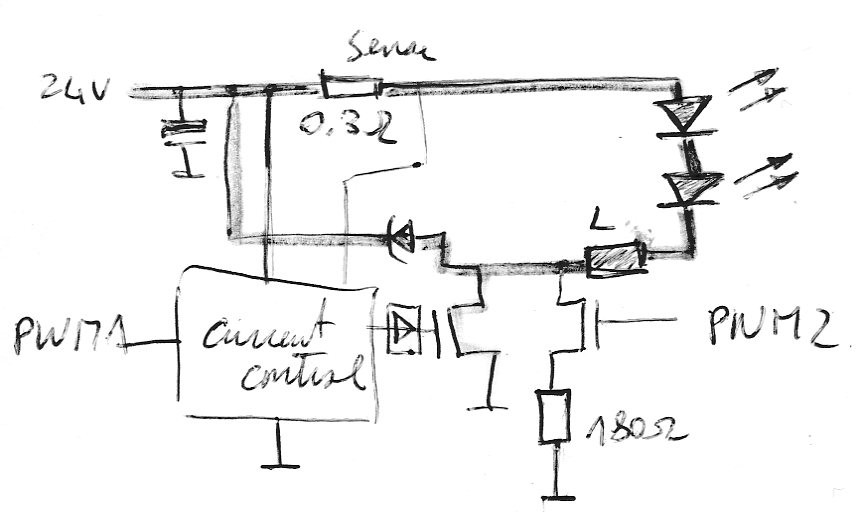 Sense
24V
0.3Ω
L
PWM1
current
control
PWM2
180Ω